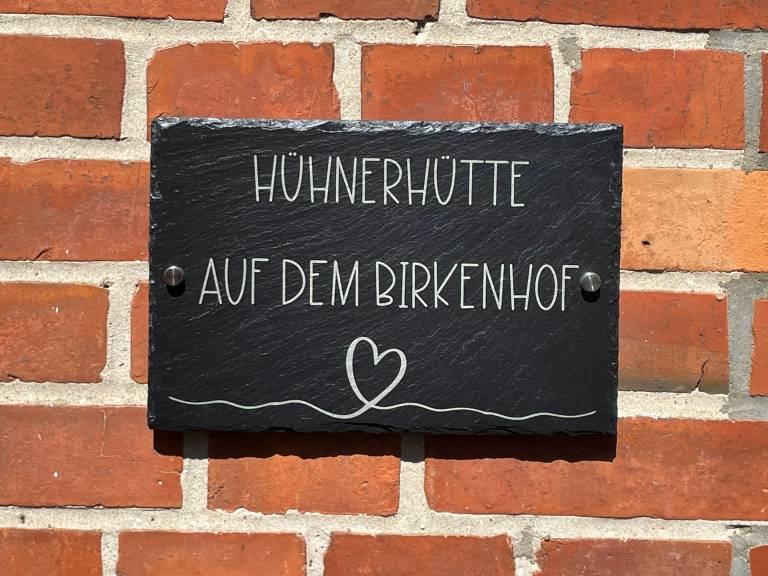 HÜHNERHÜTTE
AUF DEM BIRKENHOF